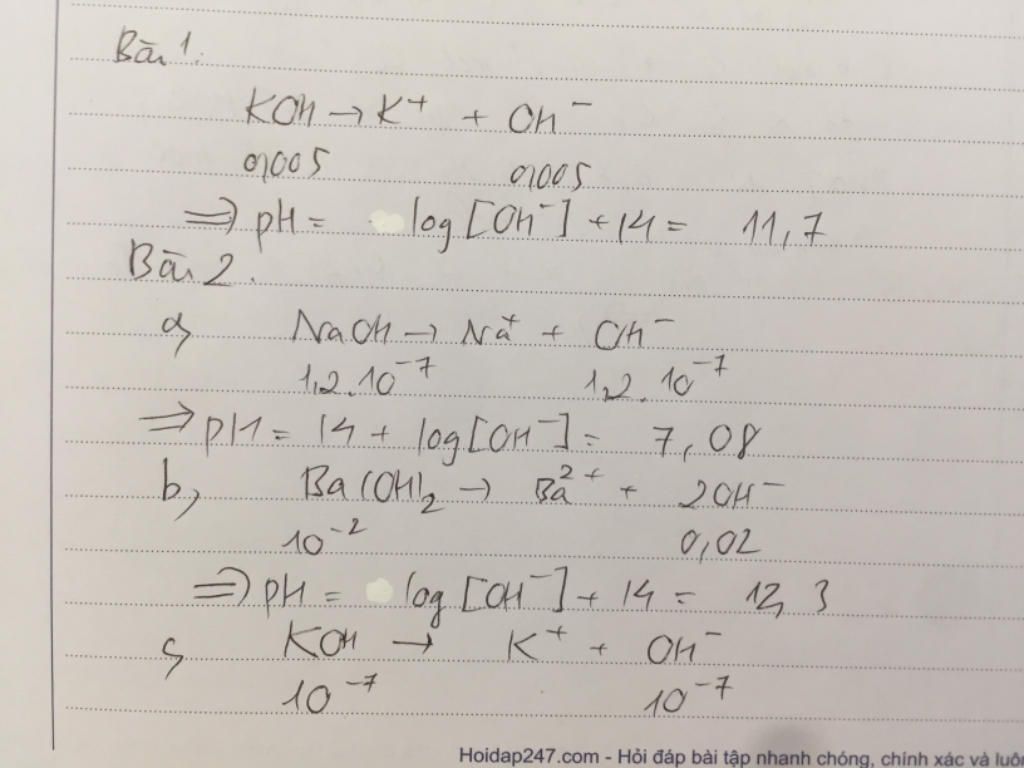 Bài 1.
KOH → K⁺ + OH⁻
0,005 0,005
⇒ pH = log [OH⁻] + 14 = 11,7
Bài 2.
a, NaOH → Na⁺ + OH⁻
1,2.10⁻⁷ 1,2.10⁻⁷
⇒ pH = 14 + log [OH⁻] = 7,08
b, Ba(OH)₂ → Ba²⁺ + 2OH⁻
10⁻² 0,02
⇒ pH = log [OH⁻] + 14 = 12,3
c, KOH → K⁺ + OH⁻
10⁻⁷ 10⁻⁷
Hoidap247.com - Hỏi đáp bài tập nhanh chóng, chính xác và luôn